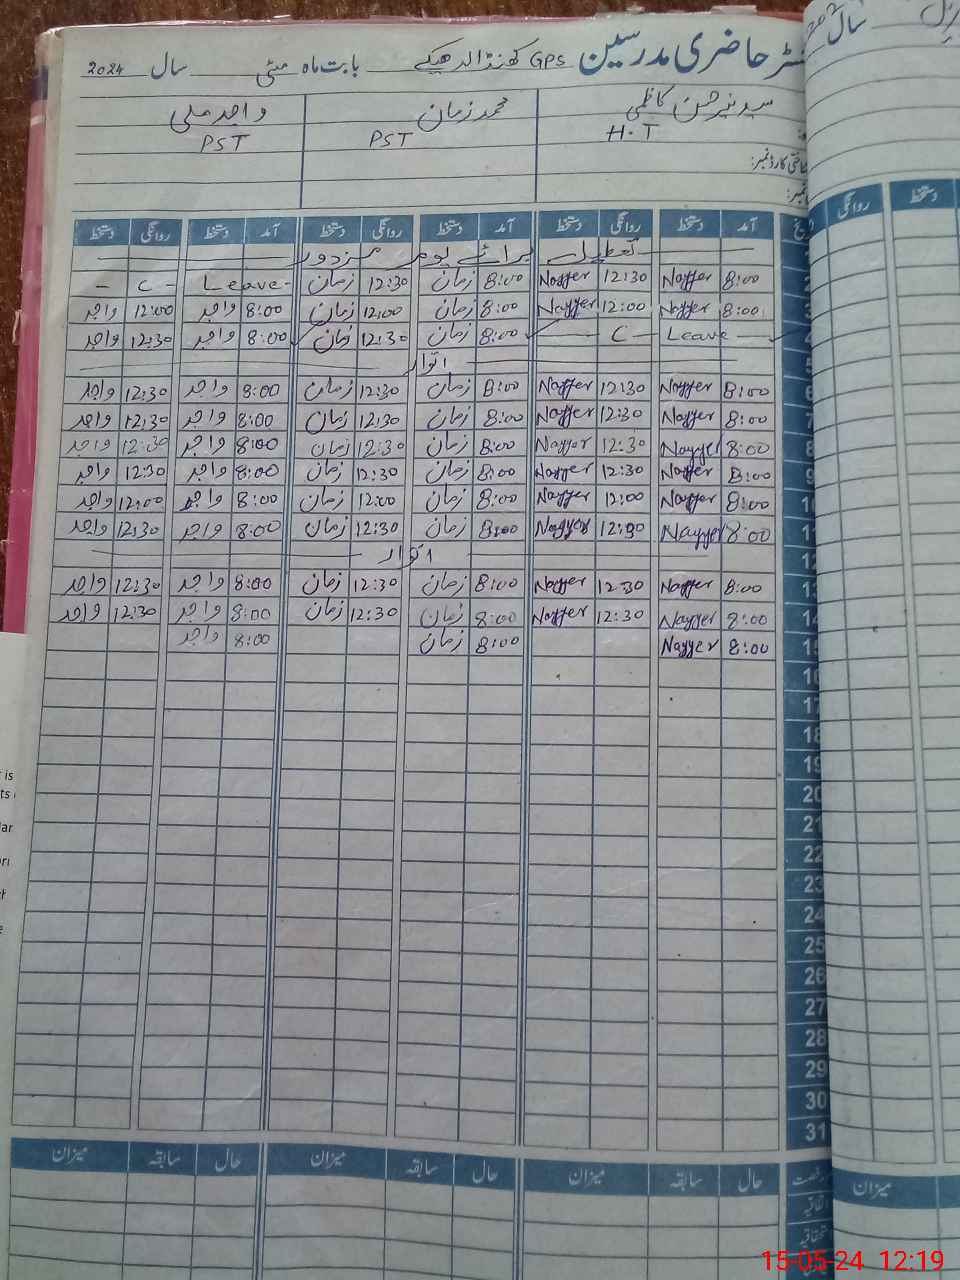 رجسٹر حاضری مدرسین GPS کھنڈا لدھیکے بابت ماہ مئی سال 2024
سید نیر حسن کاظمی محمد زمان واجد علی
H.T PST PST
شناختی کارڈ نمبر:
آمد دستخط روانگی دستخط آمد دستخط روانگی دستخط آمد دستخط روانگی دستخط
تعطیل برائے یوم مزدور
2 8:00 Nayyer 12:30 Nayyer 8:00 زمان 12:30 زمان Leave - C -
3 8:00 Nayyer 12:00 Nayyer 8:00 زمان 12:00 زمان 8:00 واجد 12:00 واجد
4 Leave C 8:00 زمان 12:30 زمان 8:00 واجد 12:30 واجد
5 اتوار
6 8:00 Nayyer 12:30 Nayyer 8:00 زمان 12:30 زمان 8:00 واجد 12:30 واجد
7 8:00 Nayyer 12:30 Nayyer 8:00 زمان 12:30 زمان 8:00 واجد 12:30 واجد
8 8:00 Nayyer 12:30 Nayyer 8:00 زمان 12:30 زمان 8:00 واجد 12:30 واجد
9 8:00 Nayyer 12:30 Nayyer 8:00 زمان 12:30 زمان 8:00 واجد 12:30 واجد
10 8:00 Nayyer 12:00 Nayyer 8:00 زمان 12:00 زمان 8:00 واجد 12:00 واجد
11 8:00 Nayyer 12:30 Nayyer 8:00 زمان 12:30 زمان 8:00 واجد 12:30 واجد
12 اتوار
13 8:00 Nayyer 12:30 Nayyer 8:00 زمان 12:30 زمان 8:00 واجد 12:30 واجد
14 8:00 Nayyer 12:30 Nayyer 8:00 زمان 12:30 زمان 8:00 واجد 12:30 واجد
15 8:00 Nayyer 8:00 زمان 8:00 واجد
16
17
18
19
20
21
22
23
24
25
26
27
28
29
30
31
رخصت حال سابقہ میزان حال سابقہ میزان حال سابقہ میزان
اتفاقیہ
استحقاقیہ
سال
دستخط روانگی
میزان
15-05-24 12:19